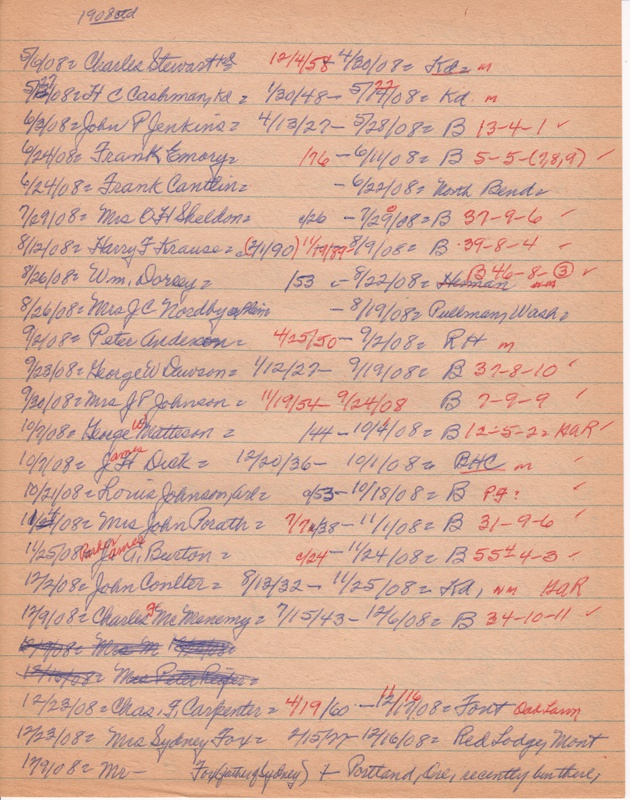 1908 std
5/9/08= Charles Stewart Kd 12/4/58 4/30/08= Kd= m
5/27/08= H C Cashman, Kd = 1/30/48 - 5/22/08= Kd. m
6/3/08= John P Jenkins= 4/13/27 - 5/28/08= B 13-4-1 ✓
6/24/08= Frank Emory= /76 - 6/11/08= B 5-5-(7,8,9) ✓
6/24/08= Frank Cantlin= - 6/22/08= North Bend=
7/29/08= Mrs O H Sheldon= c/26 - 7/20/08= B 37-9-6 ✓
8/12/08= Harry F Krause= (7/1/90) 11/19/89 8/9/08= B 39-8-4 ✓
8/26/08= Wm, Dorsey= /53 - 8/22/08= Herman B 46-8-3 ✓ nm
8/26/08= Mrs J C Nordby - 8/19/08= Pullman, Wash=
9/2/08= Peter Anderson= 4/25/50 - 9/2/08= R H m
9/23/08= George W Dawson= 1/12/27 - 9/19/08= B 37-8-10 ✓
9/30/08= Mrs J P Johnson= 11/19/54 - 9/24/08 B 7-9-9 ✓
10/7/08= George W Matteson= /44 - 10/4/08= B 12-5-2= GAR ✓
10/7/08= James J H Dick= 12/20/36 - 10/1/08= BHC m ✓
10/21/08= Louis Johnson, Arl= c/53 - 10/18/08= B pg? ✓
11/4/08= Mrs John Porath= 7/7/38 - 11/1/08= B 31-9-6 ✓
11/25/08= Parker James J. A, Burton= c/24 - 11/24/08= B 55-4-3 ✓
12/2/08= John Coulter= 8/13/32 - 11/25/08= Kd, nm GAR
12/9/08= Charles J Mc Menemy= 7/15/43 - 12/6/08= B 34-10-11 ✓
12/9/08= Mrs M
12/15/08= Mrs Peter Pfeifer=
12/23/08= Chas, F, Carpenter= 4/19/60 - 12/16/08= Font Oak Lawn
12/23/08= Mrs Sydney Fox= 2/15/77 - 12/16/08= Red Lodge, Mont
12/9/08= Mr - Fox (father of Sydney) + Portland, Ore, recently bur there,